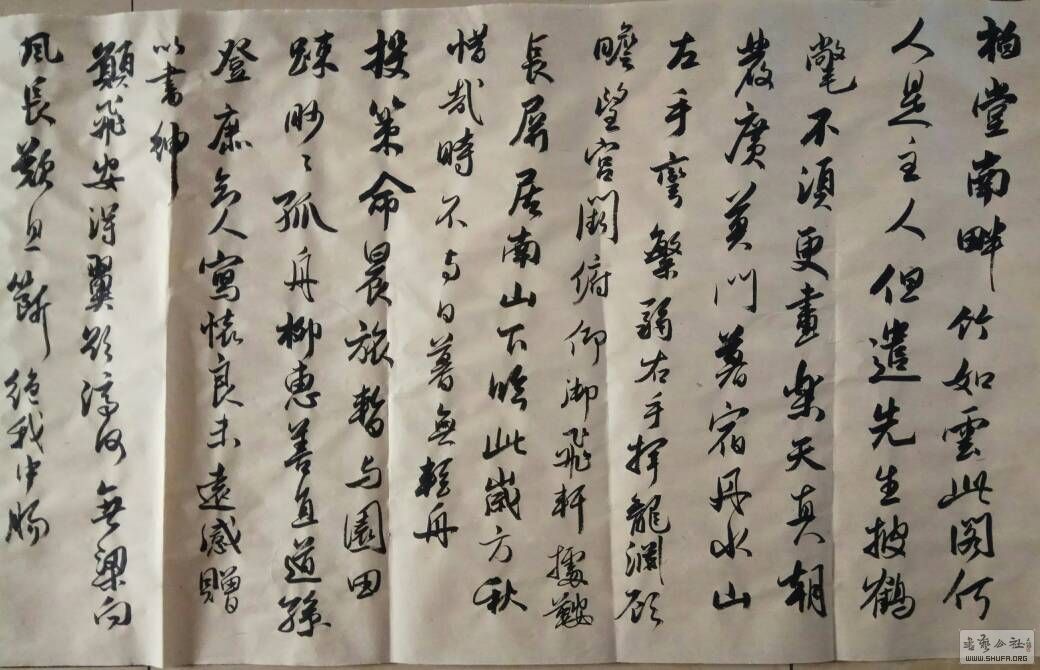 柏堂南畔竹如雲此閣何
人是主人但遣先生披鶴
氅不須更畫樂天真朝
發廣莫門暮宿丹水山
左手彎繁弱右手揮龍淵顧
瞻望宮闕俯仰御飛軒據鞍
長屏居南山下臨此歲方秋
惜哉時不与日暮無輕舟
投策命晨旅暫与園田
疎眇々孤舟柳惠善直道孫
登庶知人寓懷良未遠感贈
以書紳
願飛安得翼欲濟河無梁向
風長歎息斷絕我中腸
書藝公社
WWW.SHUFA.ORG